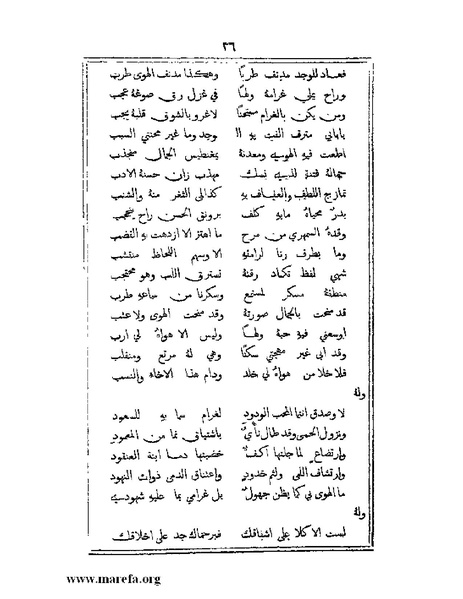 ٢٦
فعاد للوجد مدنف طربا وهكذا مدنف الهوى طرب
وراح يملي غرامهُ ولها في غزل رق صوغهُ عجب
ومن يكن بالغرام ممتحنا لا غرو بالشوق قلبهُ يجب
بابائي مترف البت به ال وجد وما غير محنتي السبب
اطعت فيه الهوى ومعدنهُ بمغنطيس الجمال منجذب
جمالهُ فتنة لذي نسك مهذب زان حسنهُ الادب
تمازج اللطف والعفاف به كذا لمى الثغر منهُ والشنب
بدرٌ محياهُ ما به كلف برونق الحسن راح ينتجب
وقدهُ السمهري من مرح ما اهتز الا ازدهت به القضب
وما بطرف رنا لرامقهِ الا وسهم اللحاظ منتشب
شهي لفظ تكاد رقتهُ تسترق اللب وهو محتجب
منطقهُ مسكر لمستمع وسكرنا من سماعهِ طرب
قد سمحت بالجمال صورتهُ وقد سمحت الهوى ولا عتب
اوسعني فيهِ حبهُ ولها وليس الا هواهُ لي ارب
وقد ابى غير مهجتي سكنا وهي لهُ مرتع ومنقلب
فلا خلا من هواهُ لي خلد ودام هذا الاخاء والنسب
ولهُ
لا وصدق انتما المحب الودود لغرام سما بهِ للسعود
ونزول الحمى وقد طال نأيٌ باشتياق نما من المعمود
وارتضاع لما جلتها اكفٌ خضبتها دما ابنة العنقود
وارتشاف اللمى ولثم خدودٍ واعتناق الدمى ذوات النهود
ما الهوى لي كما يظن جهولٌ بل غرامي بما عليهِ شهودي
ولهُ
لست الا كلا على اشفاقك فبرحماك جد على اخلاقك
www.marefa.org